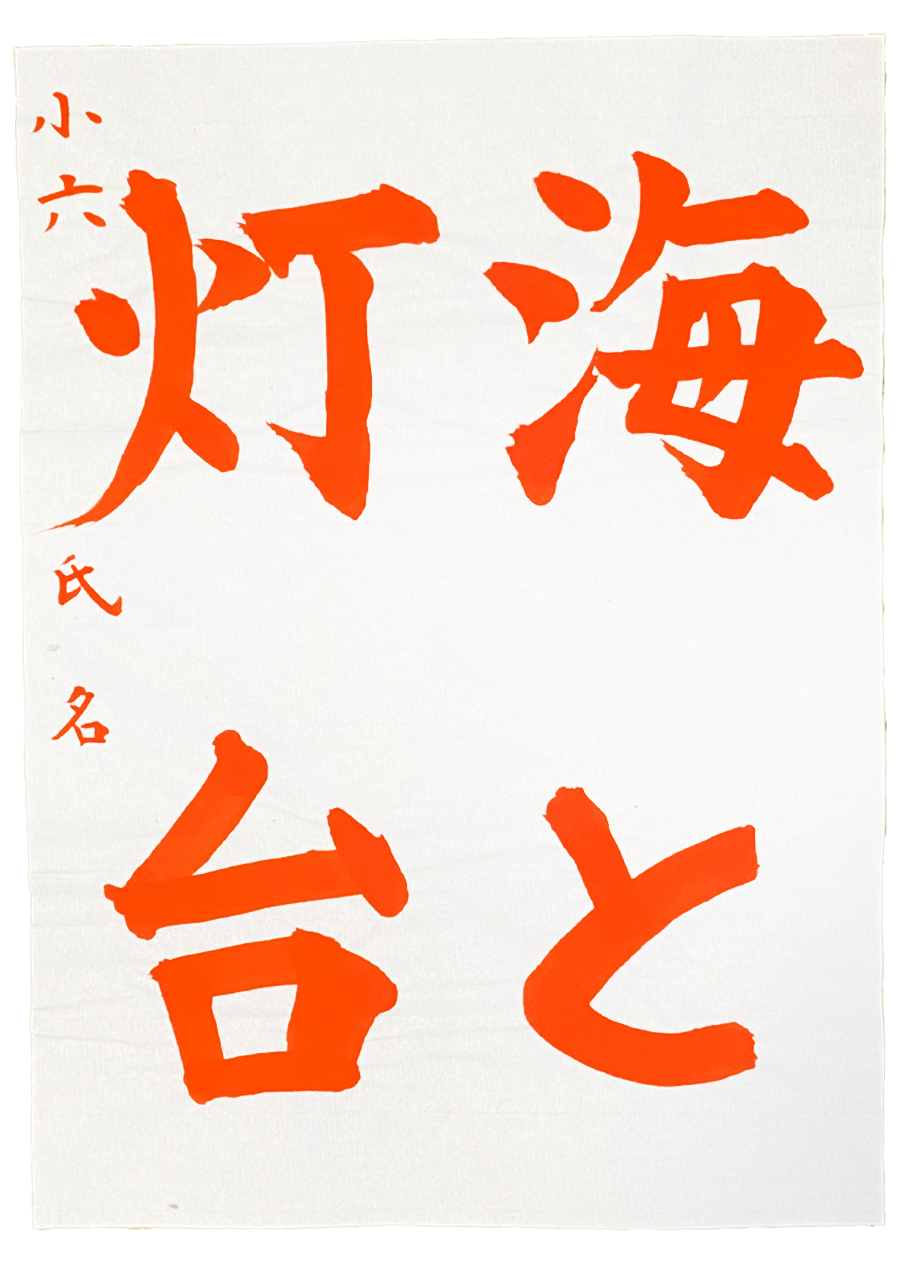 海と
灯台
小六 氏名